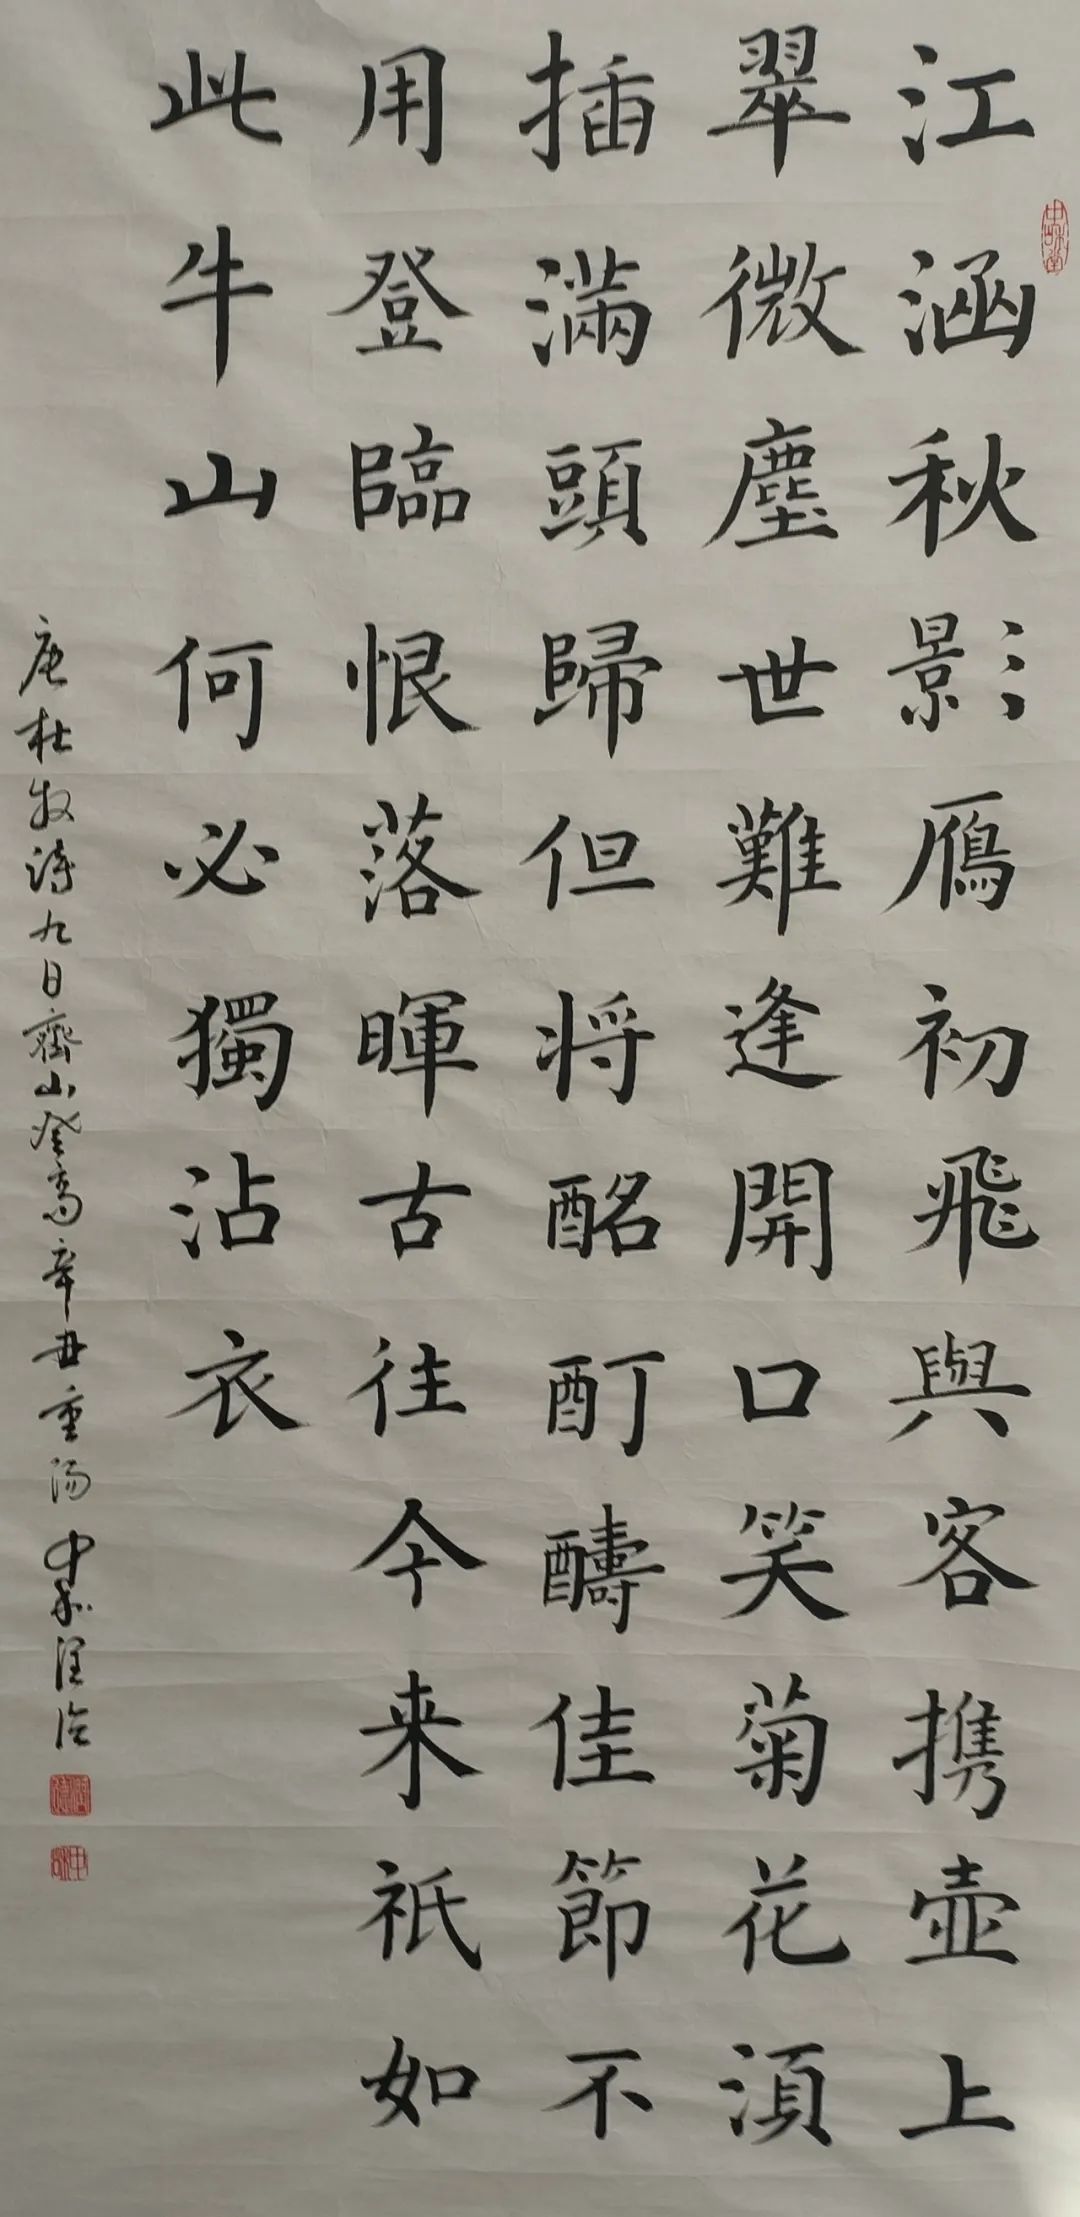 江涵秋影鴈初飛與客携壷上
翠微塵世難逢開口笑菊花湏
插滿頭歸但将酩酊醻佳節不
用登臨恨落暉古往今来祇如
此牛山何必獨沾衣
唐杜牧詩九日齊山登高辛丑重陽中和
中和堂
中和